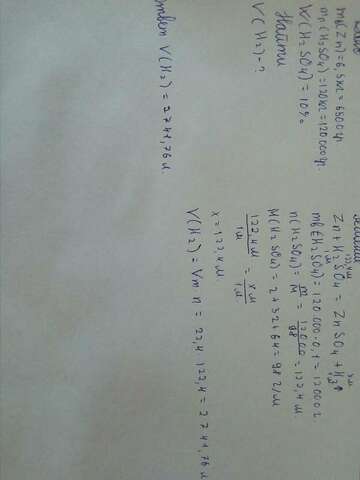 Дано
m(Zn)=65кг=65000гр.
mр.(H₂SO₄)=120кг=120000гр.
W(H₂SO₄)=10%
Найти
V(H₂)-?
122,4м xм
Zn+H₂SO₄=ZnSO₄+H₂↑
1м 1м
mв(H₂SO₄)=120.000·0,1=12000г
n(H₂SO₄)=m/M=12000/98=122,4м.
M(H₂SO₄)=2+32+64=98г/м
122,4м/1м=xм/1м
x=122,4м.
V(H₂)=Vm·n=22,4·122,4=2741,76л
Ответ V(H₂)=2741,76л.